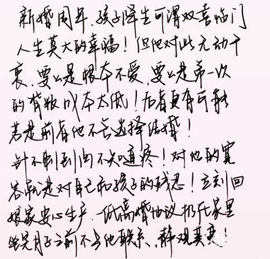 新婚周年、孩子降生可谓双喜临门
人生莫大的幸福！但他对此无动于
衷、要么是根本不爱、要么是第一次
的成败成本太低！如有更有可能
若是前者他不会选择结婚！
针不刺到肉不知道疼！对他的宽
容就是对自己和孩子的残忍！立刻回
娘家安心生产、低离婚协议扔在家里
坐完月子之前不与他联系、静观其变！